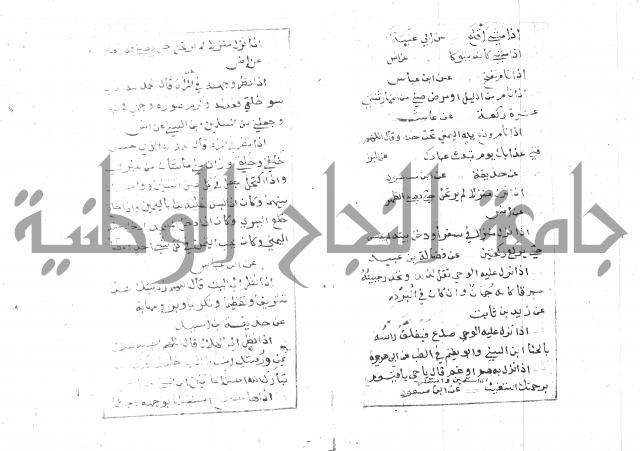 اذا مشى أقلع عن ابي عنبة
اذا مشى كانه يتوكا عن انس
اذا نام نفخ عن ابن عباس
اذا نام من الليل او مرض صلى من النهار ثنتي
عشرة ركعة عن عائشة
اذا نام وضع يده اليمنى تحت خده وقال اللهم
قني عذابك يوم تبعث عبادك
عن حذيفة عن ابن مسعود
اذا نزل منزلا لم يرتحل حتى يصلي الظهر
عن انس
اذا نزل منزلا في سفر او دخل بيته لم يجلس
حتى يركع ركعتين عن فضالة بن عبيد
اذا نزل عليه الوحي ثقل لذلك وتحدر جبينه
عرقا كانه جمان وان كان في البرد
عن زيد بن ثابت
اذا نزل عليه الوحي صدع فيغلف راسه
بالحنا ابن السني وابو نعيم في الطب عن ابي هريرة
اذا نزل به هم او غم قال يا حي يا قيوم
برحمتك استغيث عن ابن مسعود
اذا نزل منزلا لم يرتحل حتى يصلي
عن انس
اذا نظر وجهه في المرآة قال الحمد لله الذي
سوى خلقي فعدله وكرم صورة وجهي
وجعلني من المسلمين ابن السني عن انس
اذا نظر في المرآة قال الحمد لله الذي حسن
خلقي وخلقي وزان مني ما شان من غيري
واذا اكتحل جعل في كل عين اثنتين وواحدة
بينهما وكان اذا لبس نعليه بدا باليمين واذا خلع
خلع اليسرى وكان اذا دخل المسجد ادخل رجله
اليمنى وكان يحب التيمن في كل شيء اخذ
عن ابن عباس
اذا نظر الى البيت قال اللهم زد بيتك هذا
تشريفا وتعظيما وتكريما وبرا ومهابة
عن حذيفة بن اسيد
اذا نظر الى الهلال قال اللهم اجعله هلال
يمن ورشد
تبارك الله احسن الخالقين
جامعة النجاح الوطنية